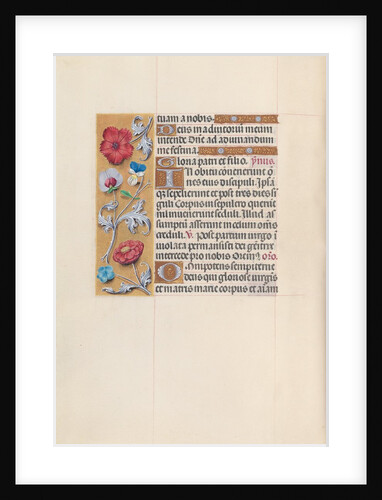 tuam a nobis.
Deus in adiutoriū meum
intende Dn̄e ad adiuvandum
me festina.
Gloria patri et filio. ymnus.
Ibi obitū convenerunt o
nes eius discipuli. Ipsāq̄
sepelierunt et post tres dies
Corpus in sepulcro querunt
invenerunt seduli. Illud as
sumptū asserunt in celum omēs
creduli. V. Post partum virgo i
violata permansisti dei genitrix
intercede pro nobis Orem9 Oro.
Omnipotens sempiterne
deus qui gloriose virgīs
et matris marie corpus et aīam